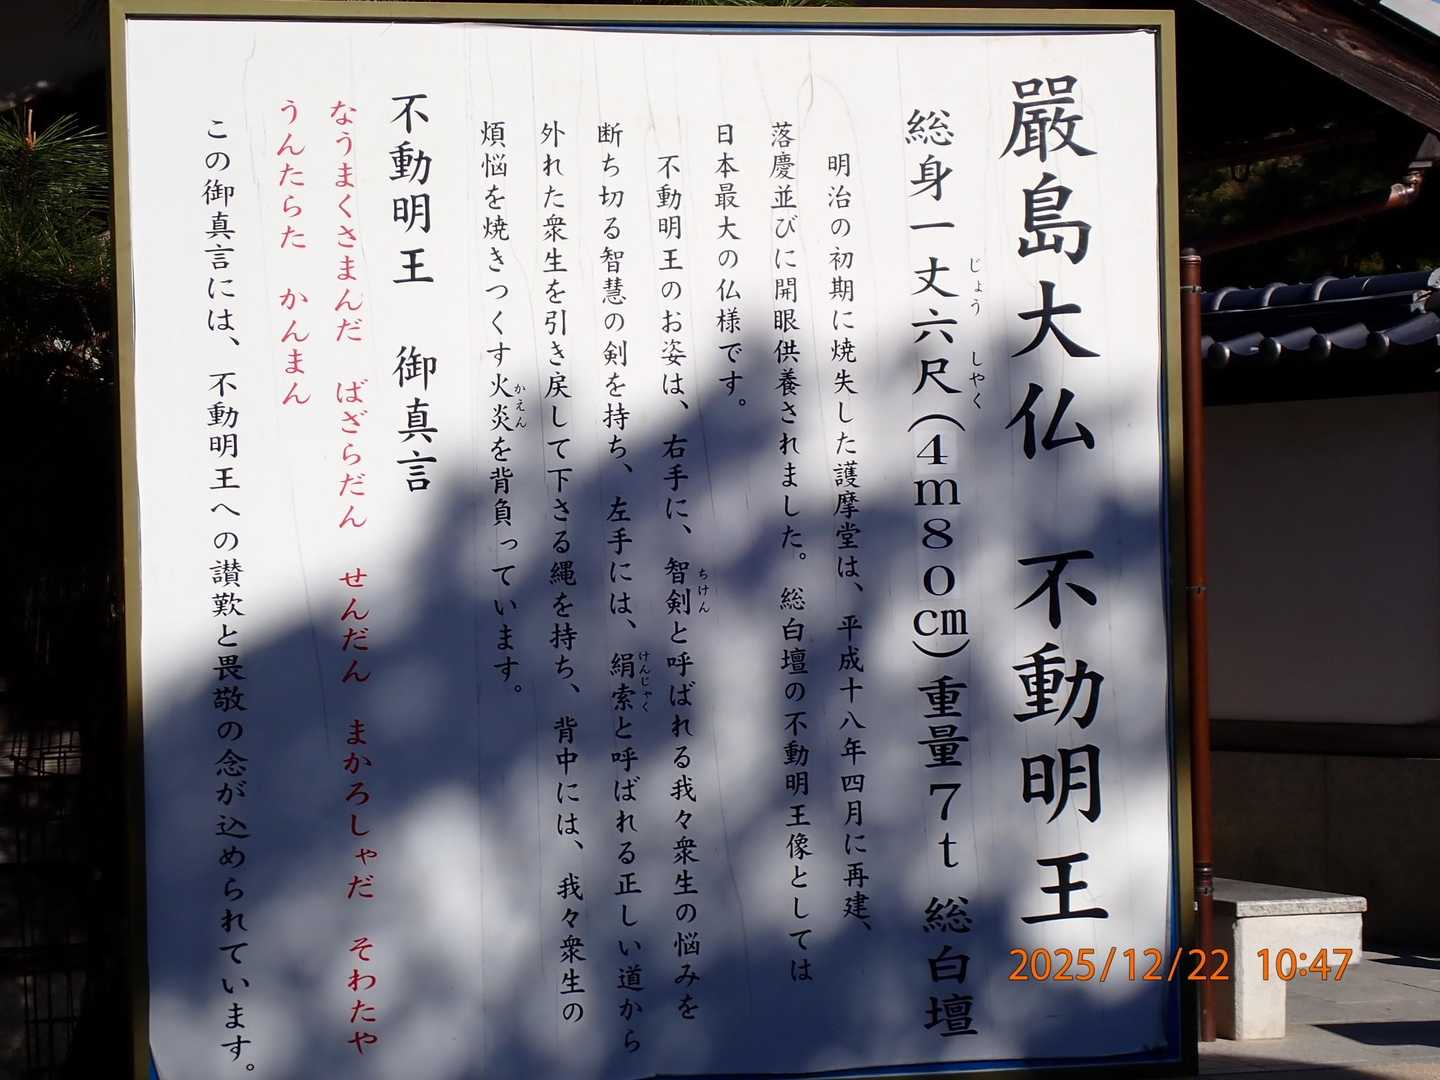 嚴島大仏　不動明王
総身一丈六尺（4m80cm）重量7t 総白壇
じょう
しゃく
明治の初期に焼失した護摩堂は、平成十八年四月に再建、
落慶並びに開眼供養されました。総白壇の不動明王像としては
日本最大の仏様です。
不動明王のお姿は、右手に、智剣と呼ばれる我々衆生の悩みを
ちけん
断ち切る智慧の剣を持ち、左手には、絹索と呼ばれる正しい道から
けんじゃく
外れた衆生を引き戻して下さる縄を持ち、背中には、我々衆生の
煩悩を焼きつくす火炎を背負っています。
かえん
不動明王　御真言
なうまくさまんだ　ばざらだん　せんだん　まかろしゃだ　そわたや
うんたらた　かんまん
この御真言には、不動明王への讃歎と畏敬の念が込められています。
2025/12/22 10:47